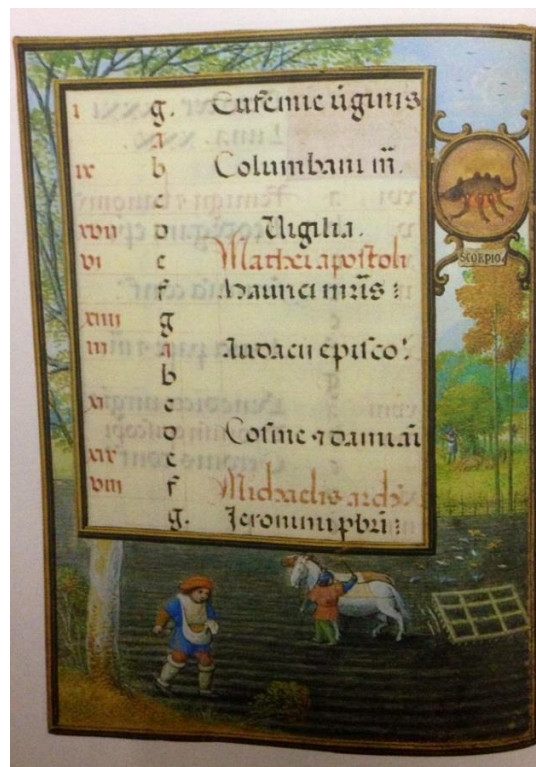 i g. Eufemie v̄ginis
a
ix b Columbani m̄.
c
xvii d Vigilia.
vi e Mathei apostoli
f Mauricii mr̄is :
xiiii g
iii a Audacii episco'.
b
xi c
d Cosme ⁊ damiani
xix e
viii f Michaelis arch.
g. Jeronimi pbr̄i :
SCORPIO